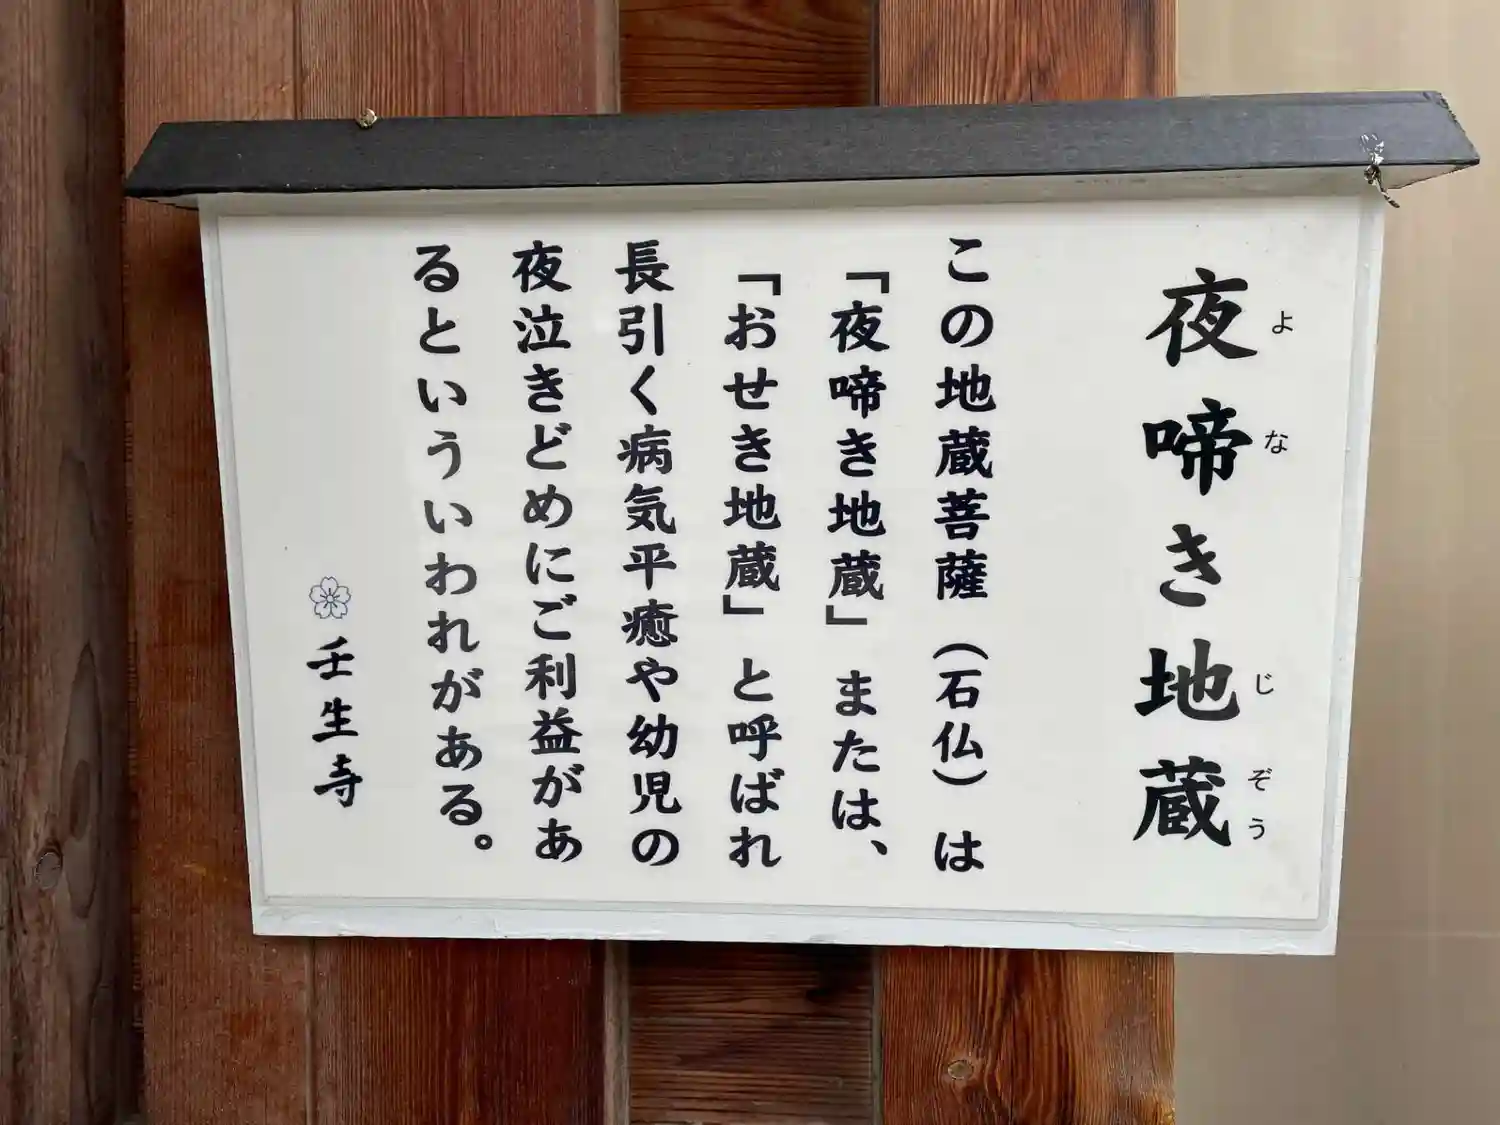 夜啼き地蔵
よ な じ ぞう
この地蔵菩薩（石仏）は
「夜啼き地蔵」または、
「おせき地蔵」と呼ばれ
長引く病気平癒や幼児の
夜泣きどめにご利益があ
るといういわれがある。
壬生寺